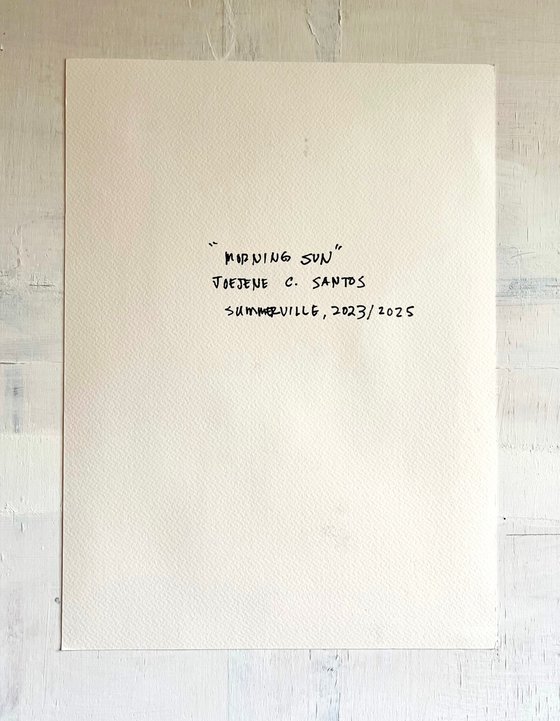 "MORNING SUN"
JOEJENE C. SANTOS
SUMMERVILLE, 2023/2025